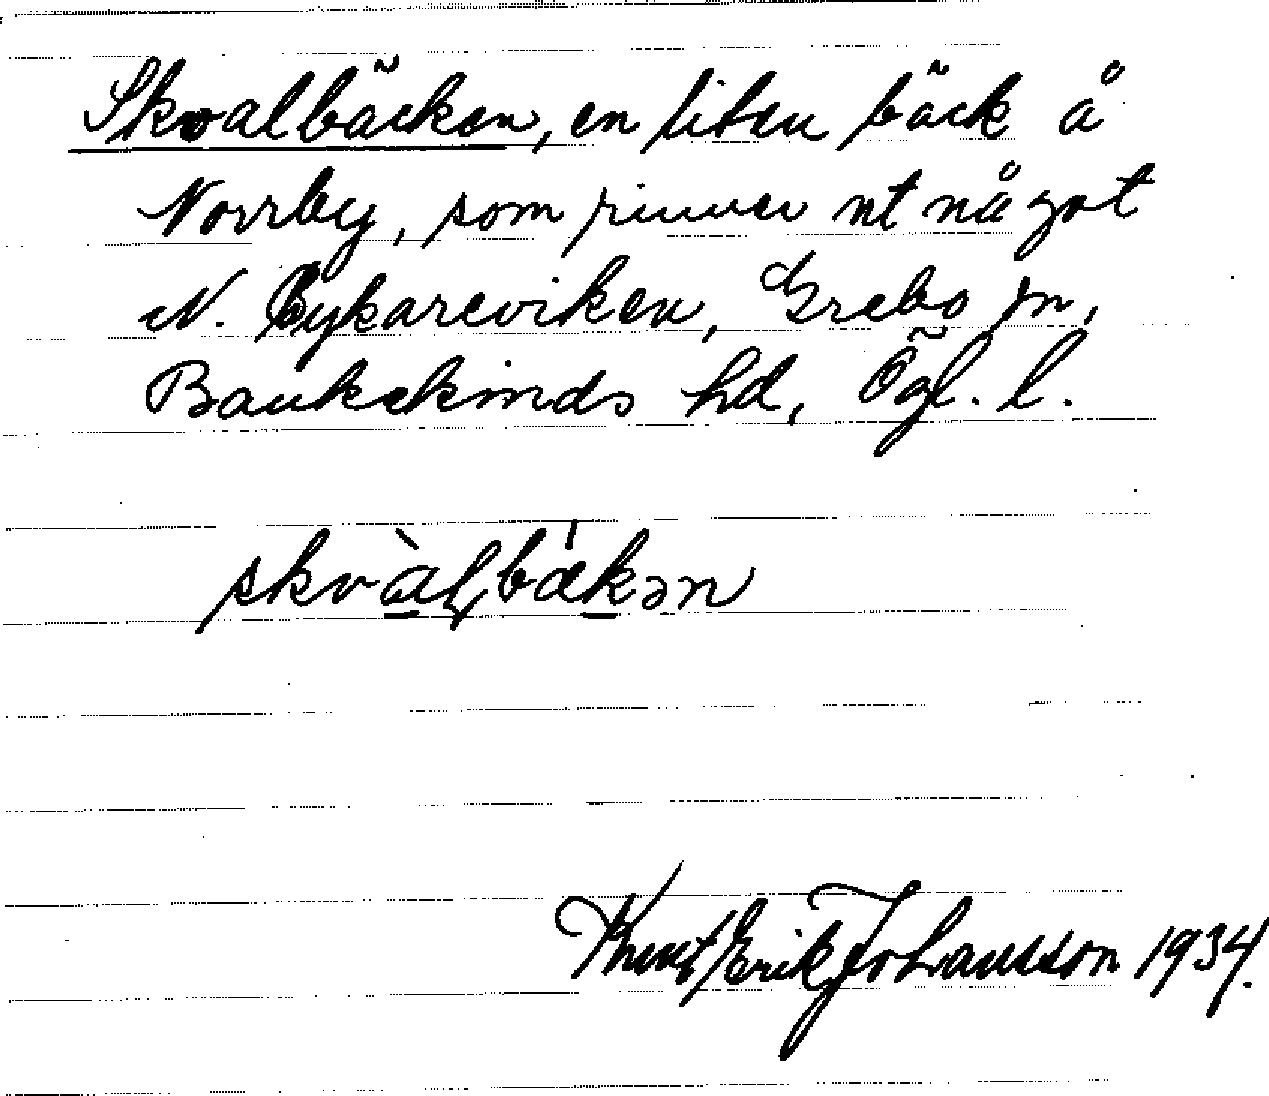 Skvalbäcken, en liten bäck å
Norrby, som rinner ut något
N. Bykareviken, Grebo sn,
Bankekinds hd, Ögl. l.
skvàlbækən
Knut Erik Johansson 1934.